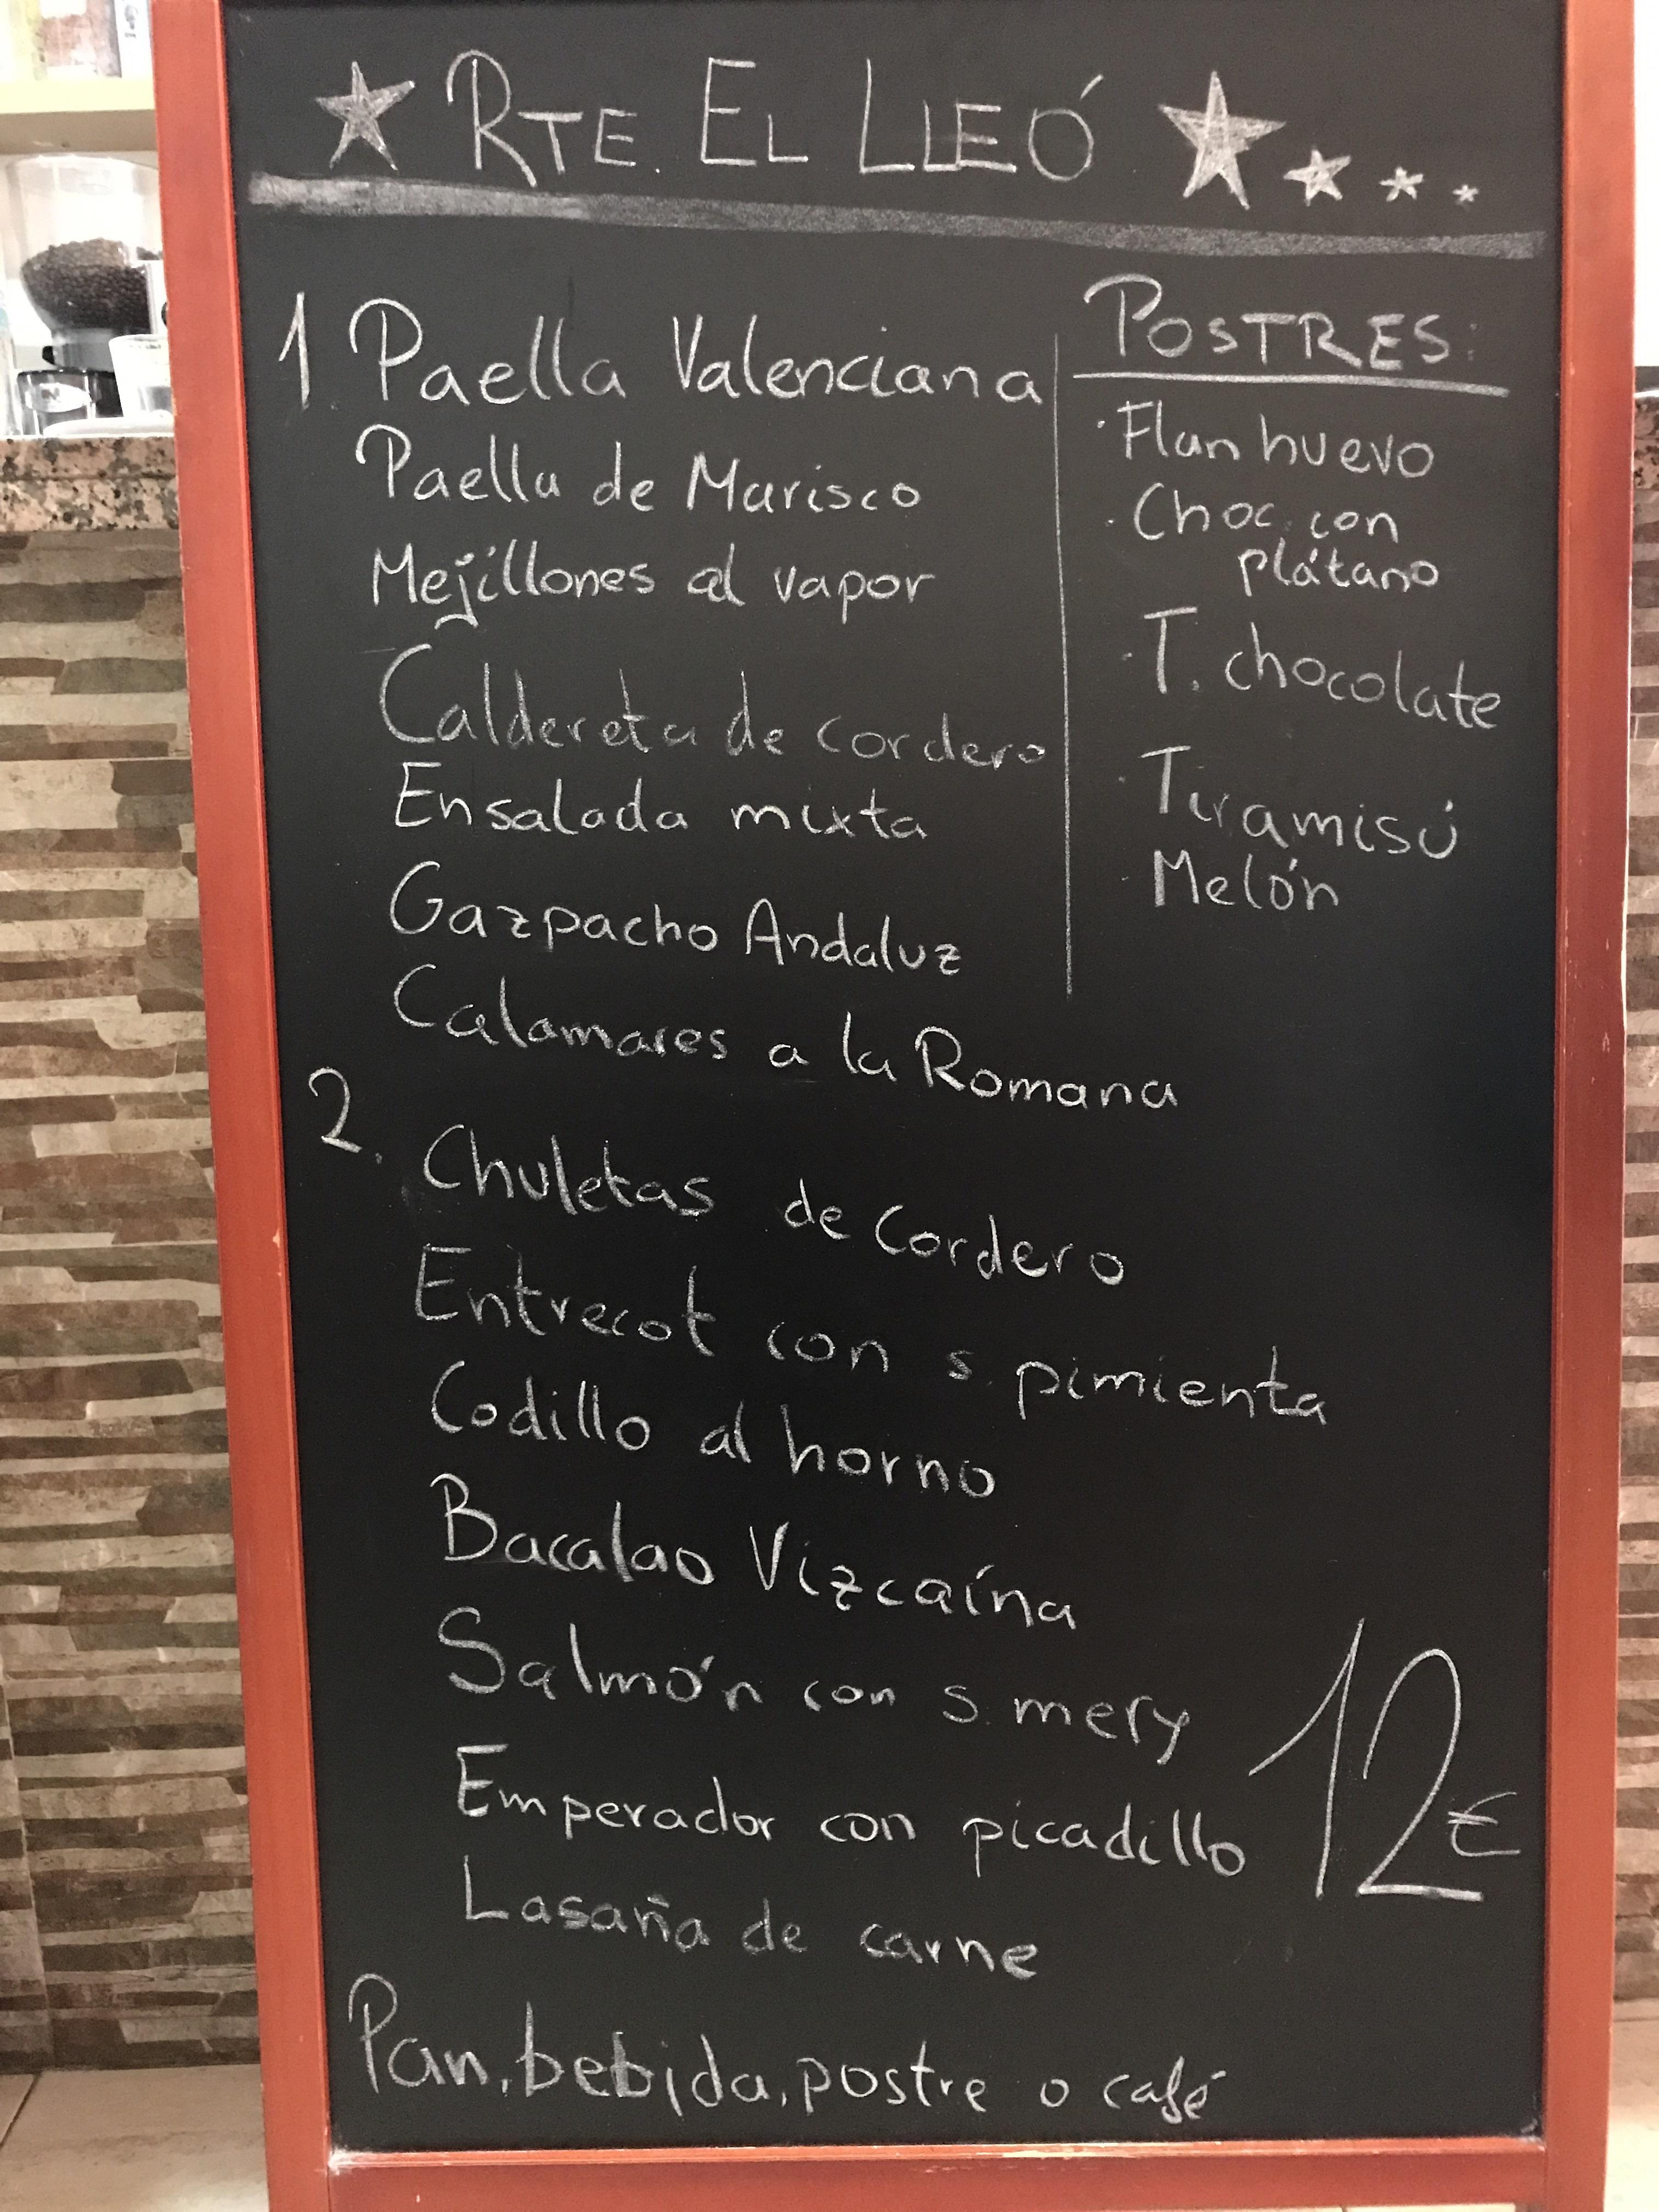 RTE. EL LLEÓ
1 Paella Valenciana
Paella de Marisco
Mejillones al vapor
Caldereta de cordero
Ensalada mixta
Gazpacho Andaluz
Calamares a la Romana
POSTRES:
· Flan huevo
· Choc. con
plátano
· T. chocolate
· Tiramisú
· Melón
2.
Chuletas de Cordero
Entrecot con s. pimienta
Codillo al horno
Bacalao Vizcaína
Salmón con s. mery
Emperador con picadillo
Lasaña de carne
12€
Pan, bebida, postre o café